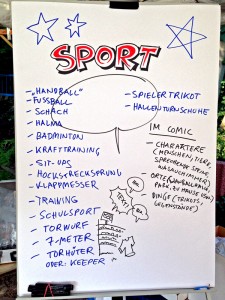 SPORT
- „HANDBALL"
- FUSSBALL
- SCHACH
- HALMA
- BADMINTON
- KRAFTTRAINING
- SIT-UPS
- HOCKSTRECKSPRUNG
- KLAPPMESSER
- TRAINING
- SCHULSPORT
- TORWURF
- 7-METER
- TORHÜTER
ODER: KEEPER
- SPIELERTRIKOT
- HALLENTURNSCHUHE
IM COMIC
- CHARAKTERE
(MENSCHEN, TIERE,
SPRECHENDE STEINE,
WASAUCHIMMER)
- ORTE (HANDBALLHALLE,
PARK, ZU HAUSE, USW.)
- DINGE (TRIKOTS,
GEGENSTÄNDE)
TEXT!